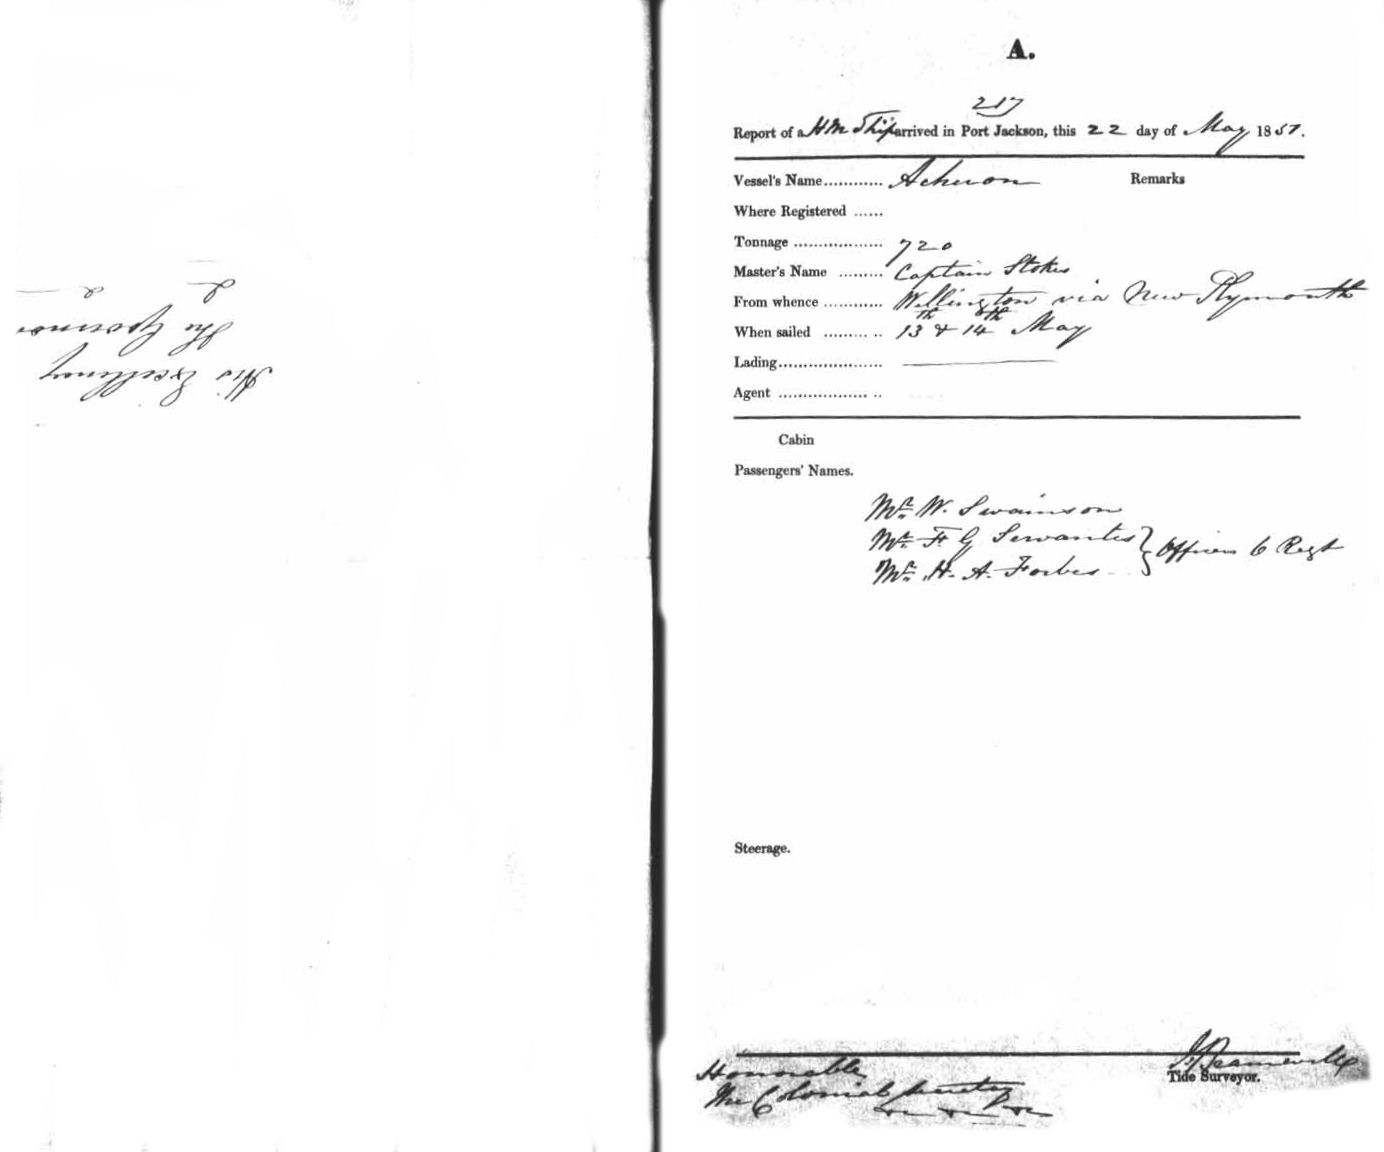 His Excellency
The Governor
A.
217
Report of a HM Ship arrived in Port Jackson, this 22 day of May 1851.
Vessel's Name............ Acheron Remarks
Where Registered ......
Tonnage .................. 720
Master's Name ......... Captain Stokes
From whence ............ Wellington via New Plymouth
When sailed ......... .. 13th & 14th May
Lading.....................
Agent .................. ..
Cabin
Passengers' Names.
Mr. W. Swainson
Mr. F G Servantes } Officers 6 Regt
Mr. H. A. Forbes
Steerage.
Honorable
The Colonial Secretary
Tide Surveyor.